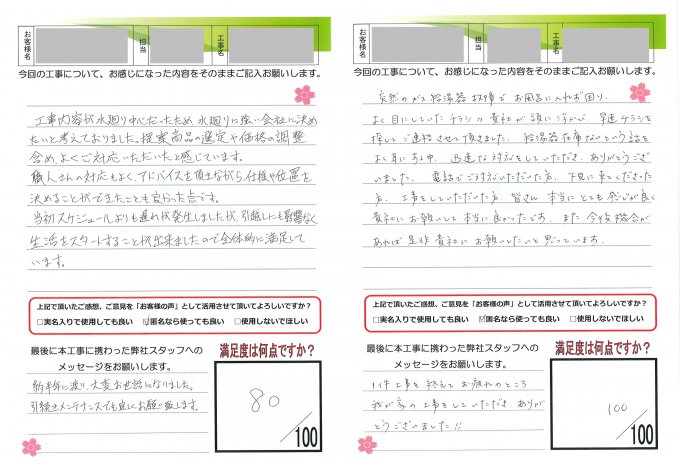 お客様名
担当
工事名
今回の工事について、お感じになった内容をそのままご記入お願いします。
工事内容が水廻り中心だったため、水廻りに強い会社に決め
たいと考えておりました。提案商品の選定や価格の調整
含め、よくご対応いただいたと感じています。
職人さんの対応もよく、アドバイスを頂きながら仕様や位置を
決めることができたことも良かった点です。
当初スケジュールよりも遅れが発生しましたが、引越しにも影響なく
生活をスタートすることが出来ましたので全体的に満足して
います。
上記で頂いたご感想、ご意見を「お客様の声」として活用させて頂いてよろしいですか？
□実名入りで使用しても良い ☑匿名なら使っても良い □使用しないでほしい
最後に本工事に携わった弊社スタッフへの
メッセージをお願いします。
約半年に渡り、大変お世話になりました。
引続きメンテナンスでも宜しくお願い致します。
満足度は何点ですか？
80
/100
お客様名
担当
工事名
今回の工事について、お感じになった内容をそのままご記入お願いします。
突然のガス給湯器故障で お風呂に入れず困り、
よく目にしていたチラシの貴社が頭に浮かび、早速チラシを
探してご連絡させて頂きました。 給湯器在庫ないという話を
よく耳にする中、迅速な対応をしていただき、ありがとうござ
いました。 電話でご対応いただいた方、下見に来てくださった
方、工事をしていただいた方、皆さん 本当にとても感じが良く
貴社にお願いして本当に良かったです。 また今後機会が
あれば是非貴社にお願いしたいと思っています。
上記で頂いたご感想、ご意見を「お客様の声」として活用させて頂いてよろしいですか？
□実名入りで使用しても良い ☑匿名なら使っても良い □使用しないでほしい
最後に本工事に携わった弊社スタッフへの
メッセージをお願いします。
1件工事を終えて お疲れのところ
我が家の工事をしていただき、ありが
とうございました!!
満足度は何点ですか？
100
/100